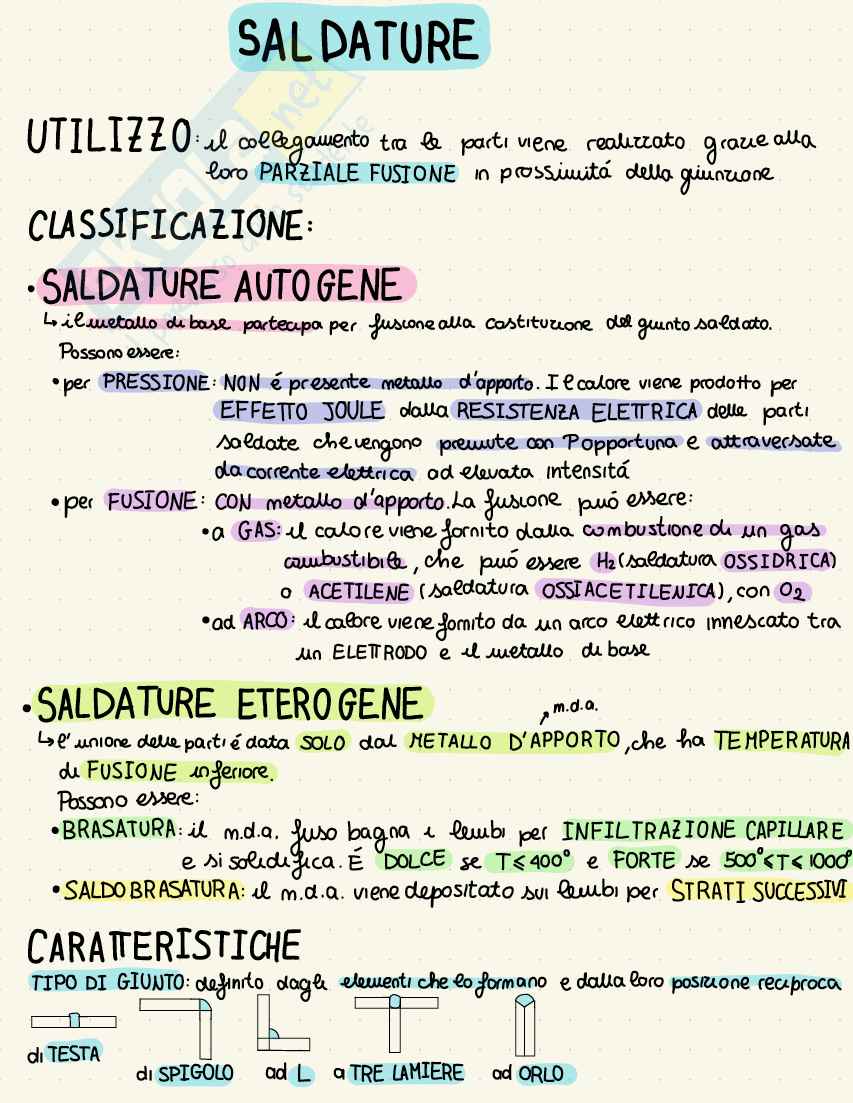 SALDATURE
UTILIZZO: il collegamento tra le parti viene realizzato grazie alla
loro PARZIALE FUSIONE in prossimitá della giunzione
CLASSIFICAZIONE:
• SALDATURE AUTOGENE
↳ il metallo di base partecipa per fusione alla costituzione del giunto saldato.
Possono essere:
• per PRESSIONE: NON é presente metallo d'apporto. Il calore viene prodotto per
EFFETTO JOULE dalla RESISTENZA ELETTRICA delle parti
saldate che vengono premute con P opportuna e attraversate
da corrente elettrica ad elevata intensitá
• per FUSIONE: CON metallo d'apporto. La fusione puó essere:
• a GAS: il calore viene fornito dalla combustione di un gas
combustibile, che puó essere H₂ (saldatura OSSIDRICA)
o ACETILENE (saldatura OSSIACETILENICA), con O₂
• ad ARCO: il calore viene fornito da un arco elettrico innescato tra
un ELETTRODO e il metallo di base
• SALDATURE ETEROGENE
↗ m.d.a.
↳ l'unione delle parti é data SOLO dal METALLO D'APPORTO, che ha TEMPERATURA
di FUSIONE inferiore.
Possono essere:
• BRASATURA: il m.d.a. fuso bagna i lembi per INFILTRAZIONE CAPILLARE
e si solidifica. É DOLCE se T≤400° e FORTE se 500°≤T≤1000°
• SALDOBRASATURA: il m.d.a. viene depositato sui lembi per STRATI SUCCESSIVI
CARATTERISTICHE
TIPO DI GIUNTO: definito dagli elementi che lo formano e dalla loro posizione reciproca
di TESTA
di SPIGOLO ad L a TRE LAMIERE ad ORLO